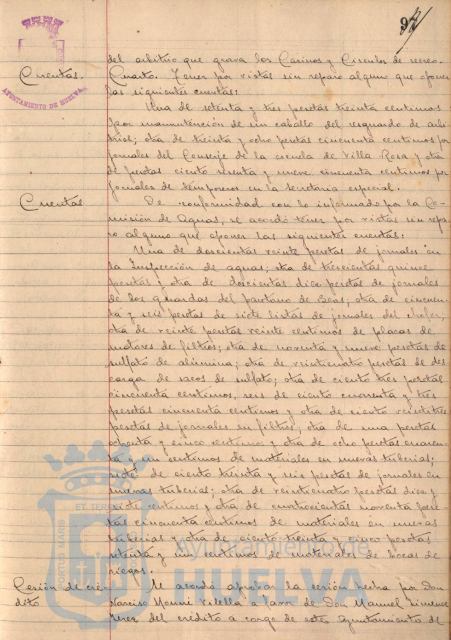 97
AYUNTAMIENTO DE HUELVA
del arbitrio que grava los Casinos y Circulos de recreo.
Cuentas. Cuarto. Tener por vistas sin reparo alguno que oponer
las siguientes cuentas:
Una de setenta y tres pesetas treinta centimos
por manutención de un caballo del resguardo de arbi-
trios; otra de treinta y ocho pesetas cincuenta centimos por
jornales del Conserje de la escuela de Villa Rosa, y otra
de pesetas ciento setenta y nueve cincuenta centimos por
jornales de temporeros en la Secretaria especial.
Cuentas De conformidad con lo informado por la Co-
misión de Aguas, se acordó tener por vistas sin repa-
ro alguno que oponer las siguientes cuentas:
Una de doscientas veinte pesetas de jornales en
la Inspección de aguas; otra de trescientas quince
pesetas y otra de doscientas diez pesetas de jornales
de los guardas del pantano de Beas; otra de cincuen-
ta y seis pesetas de siete listas de jornales del
otra de veinte pesetas veinte centimos de placas de
motores de filtros; otra de noventa y nueve pesetas de
sulfato de alumina; otra de veinticuatro pesetas de des-
carga de sacos de sulfato; otra de ciento tres pesetas
cincuenta centimos, seis de ciento cuarenta y tres
pesetas cincuenta centimos y otra de ciento veintitres
pesetas de jornales en filtros; otra de una peseta
ochenta y cinco centimos y otra de ocho pesetas cuaren-
ta y un centimos de materiales en nuevas tuberias;
de ciento treinta y seis pesetas de jornales en
nuevas tuberias; otra de veinticuatro pesetas diez y
siete centimos y otra de cuatrocientas noventa pese-
tas cincuenta centimos de materiales en nuevas
tuberias y otra de ciento treinta y cinco pesetas
setenta y un centimos de materiales de bocas de
riegos.
Cesión de cré- Se acordó aprobar la cesión hecha por Don
dito Narciso Vilella a favor de Don Manuel Jimenez
Perez del crédito a cargo de este Ayuntamiento de
Ayuntamiento de
HUELVA